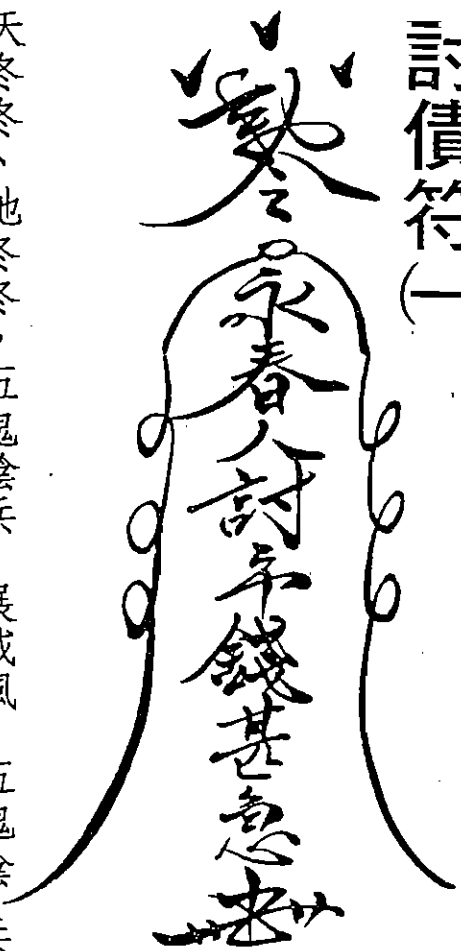 討債符(一
勅令
永春人討平錢甚急
天咚咚，地咚咚，五鬼陰兵　展威風　五鬼陰兵